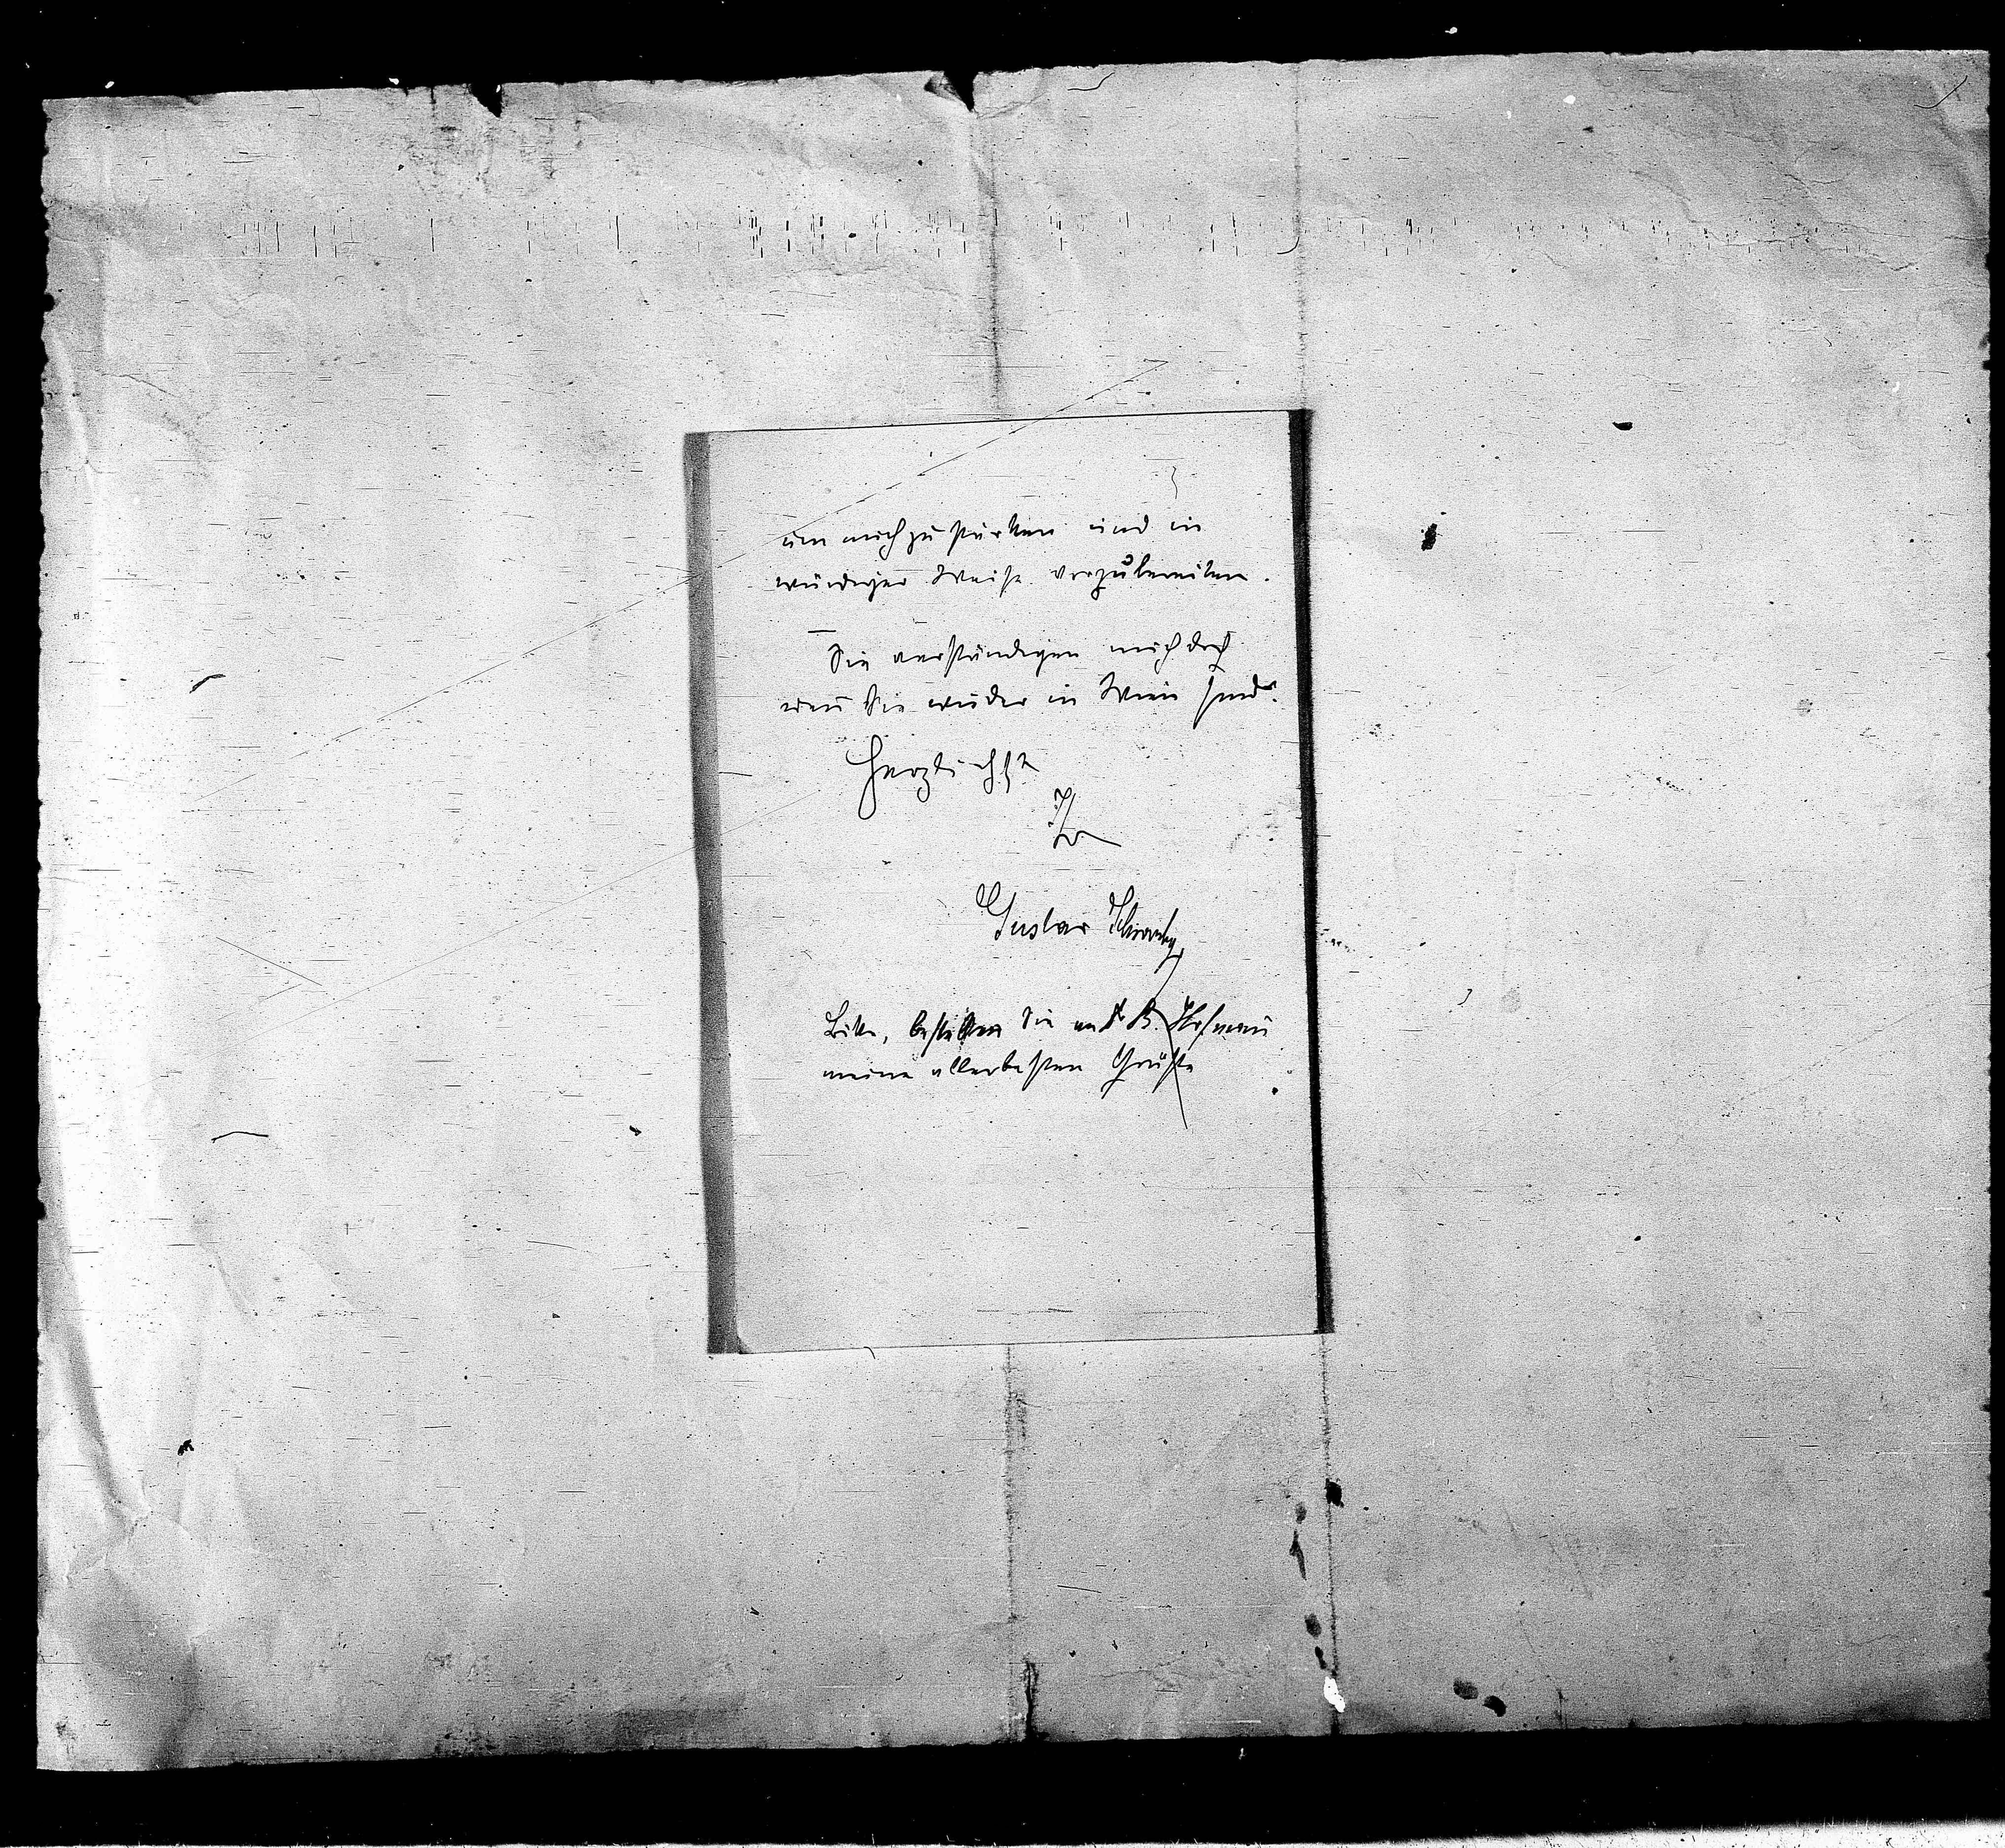 um mich zu stärken und in
würdiger Weise vorzubereiten.
Sie verständigen mich doch
wenn Sie wieder in Wien sind?
Herzlichst
Ihr
Gustav
Bitte, bestellen Sie an Dr B. Hofmann
meine allerbesten Grüße